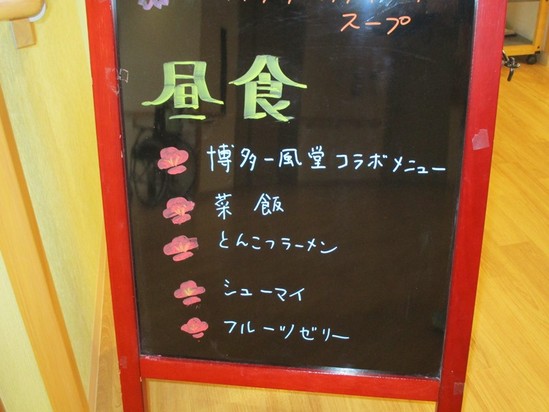 スープ
昼食
博多一風堂コラボメニュー
菜飯
とんこつラーメン
シューマイ
フルーツゼリー